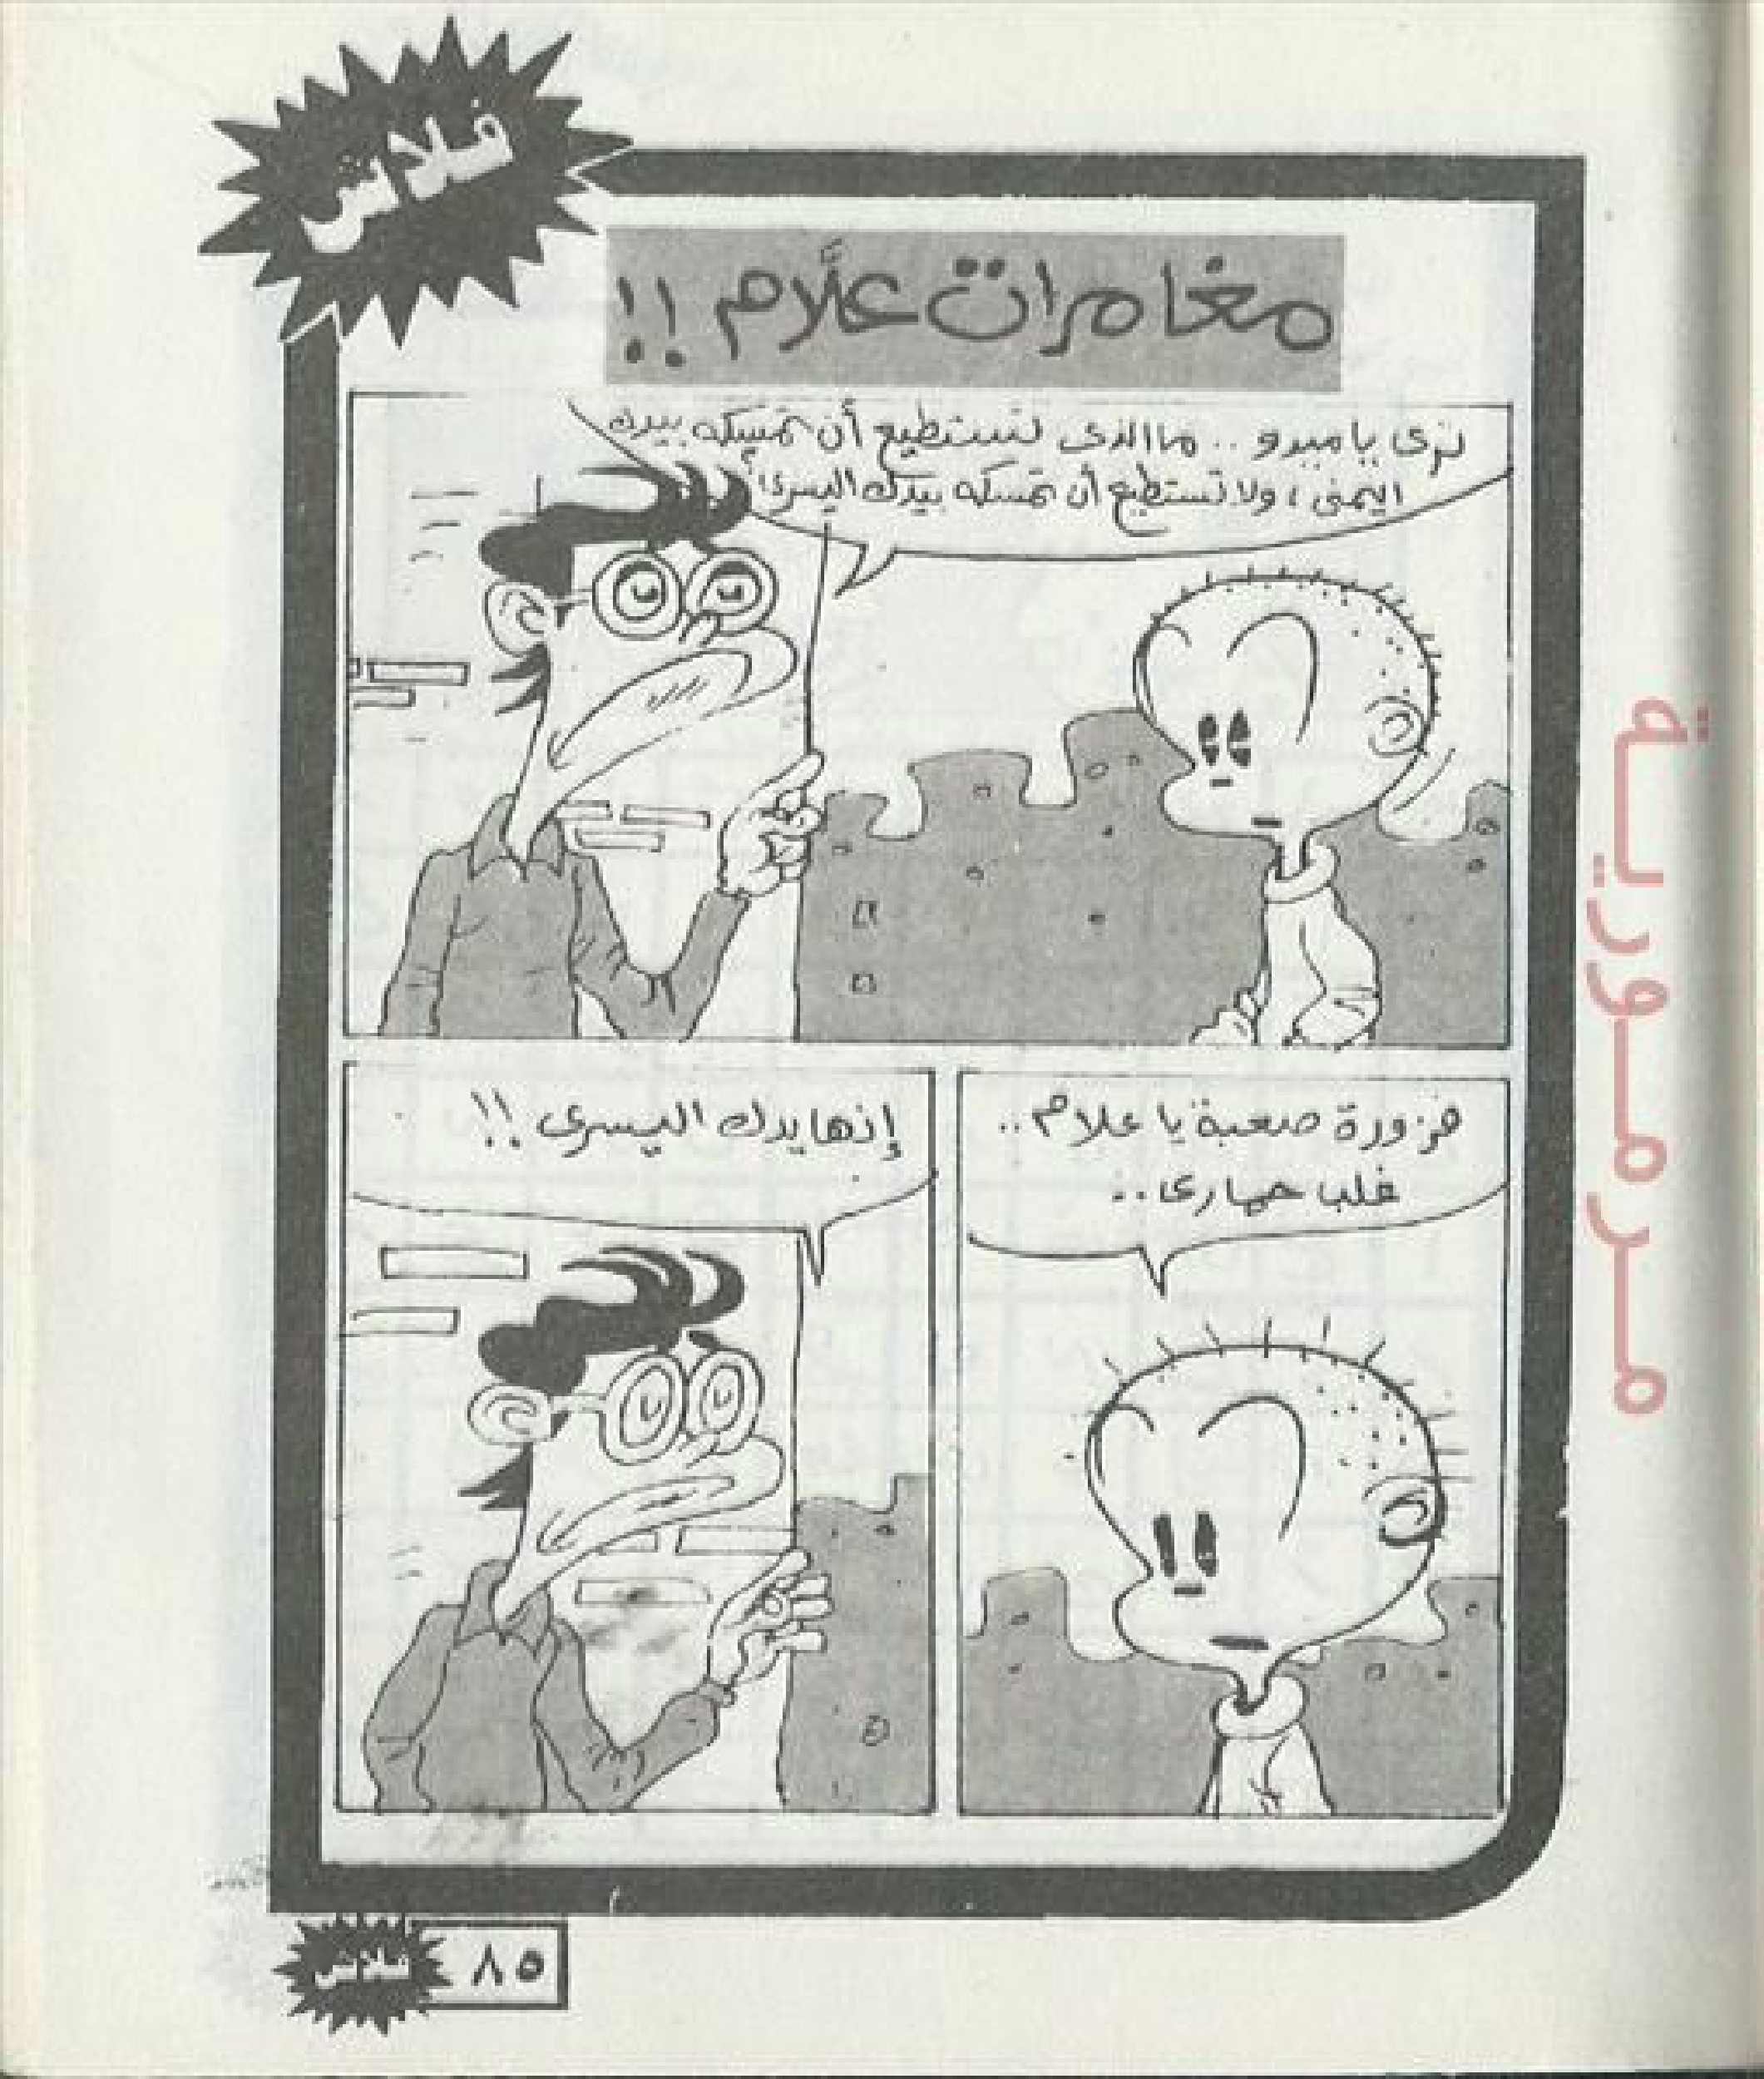 فلاش
مغامرات علَّام !!
ترى يا ميدو .. ما الذى تستطيع أن تمسكه بيدك
اليمنى ، ولا تستطيع أن تمسكه بيدك اليسرى ؟
فزورة صعبة يا علام ..
غلب حمارى ..
إنها يدك اليسرى !!
مرمورية
فلاش
٨٥